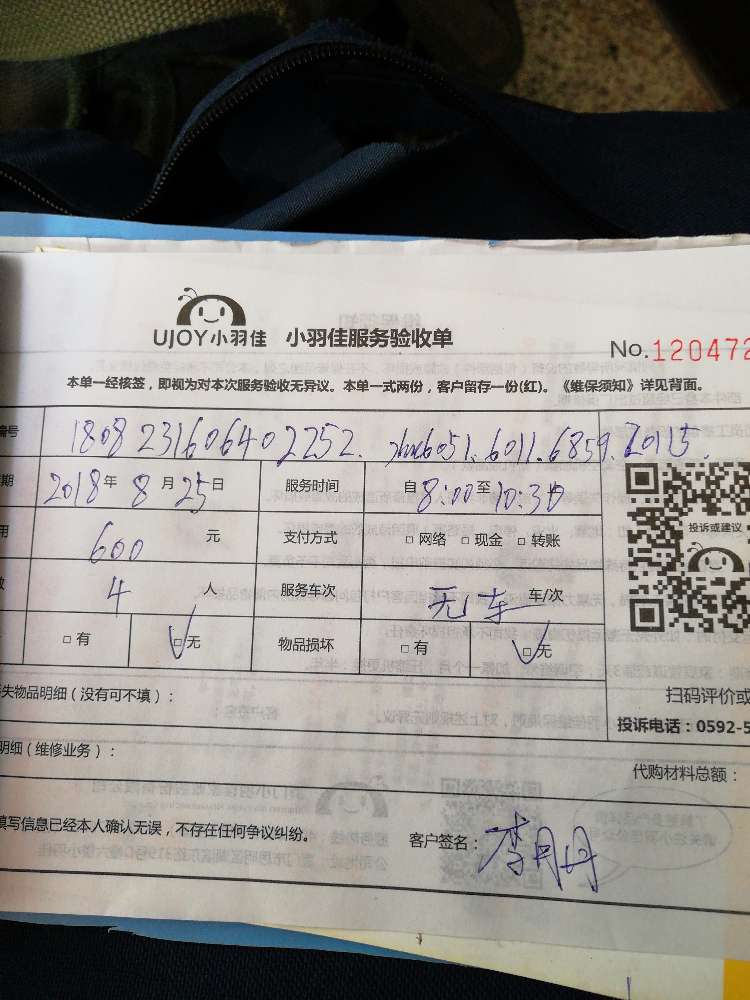 UJOY小羽佳 小羽佳服务验收单
No.120472
本单一经核签，即视为对本次服务验收无异议。本单一式两份，客户留存一份(红)。《维保须知》详见背面。
编号 1808231606402252. 6051.6011.6859.20115.
期 2018年 8月25日 服务时间 自8:00至10:30
用 600 元 支付方式 □网络 □现金 □转账
投诉或建议
数 4 人 服务车次 无车 车/次
□有 □无 物品损坏 □有 □无
失物品明细（没有可不填）：
扫码评价或
投诉电话：0592-5
明细（维修业务）：
代购材料总额：
填写信息已经本人确认无误，不存在任何争议纠纷。
客户签名：李月丹